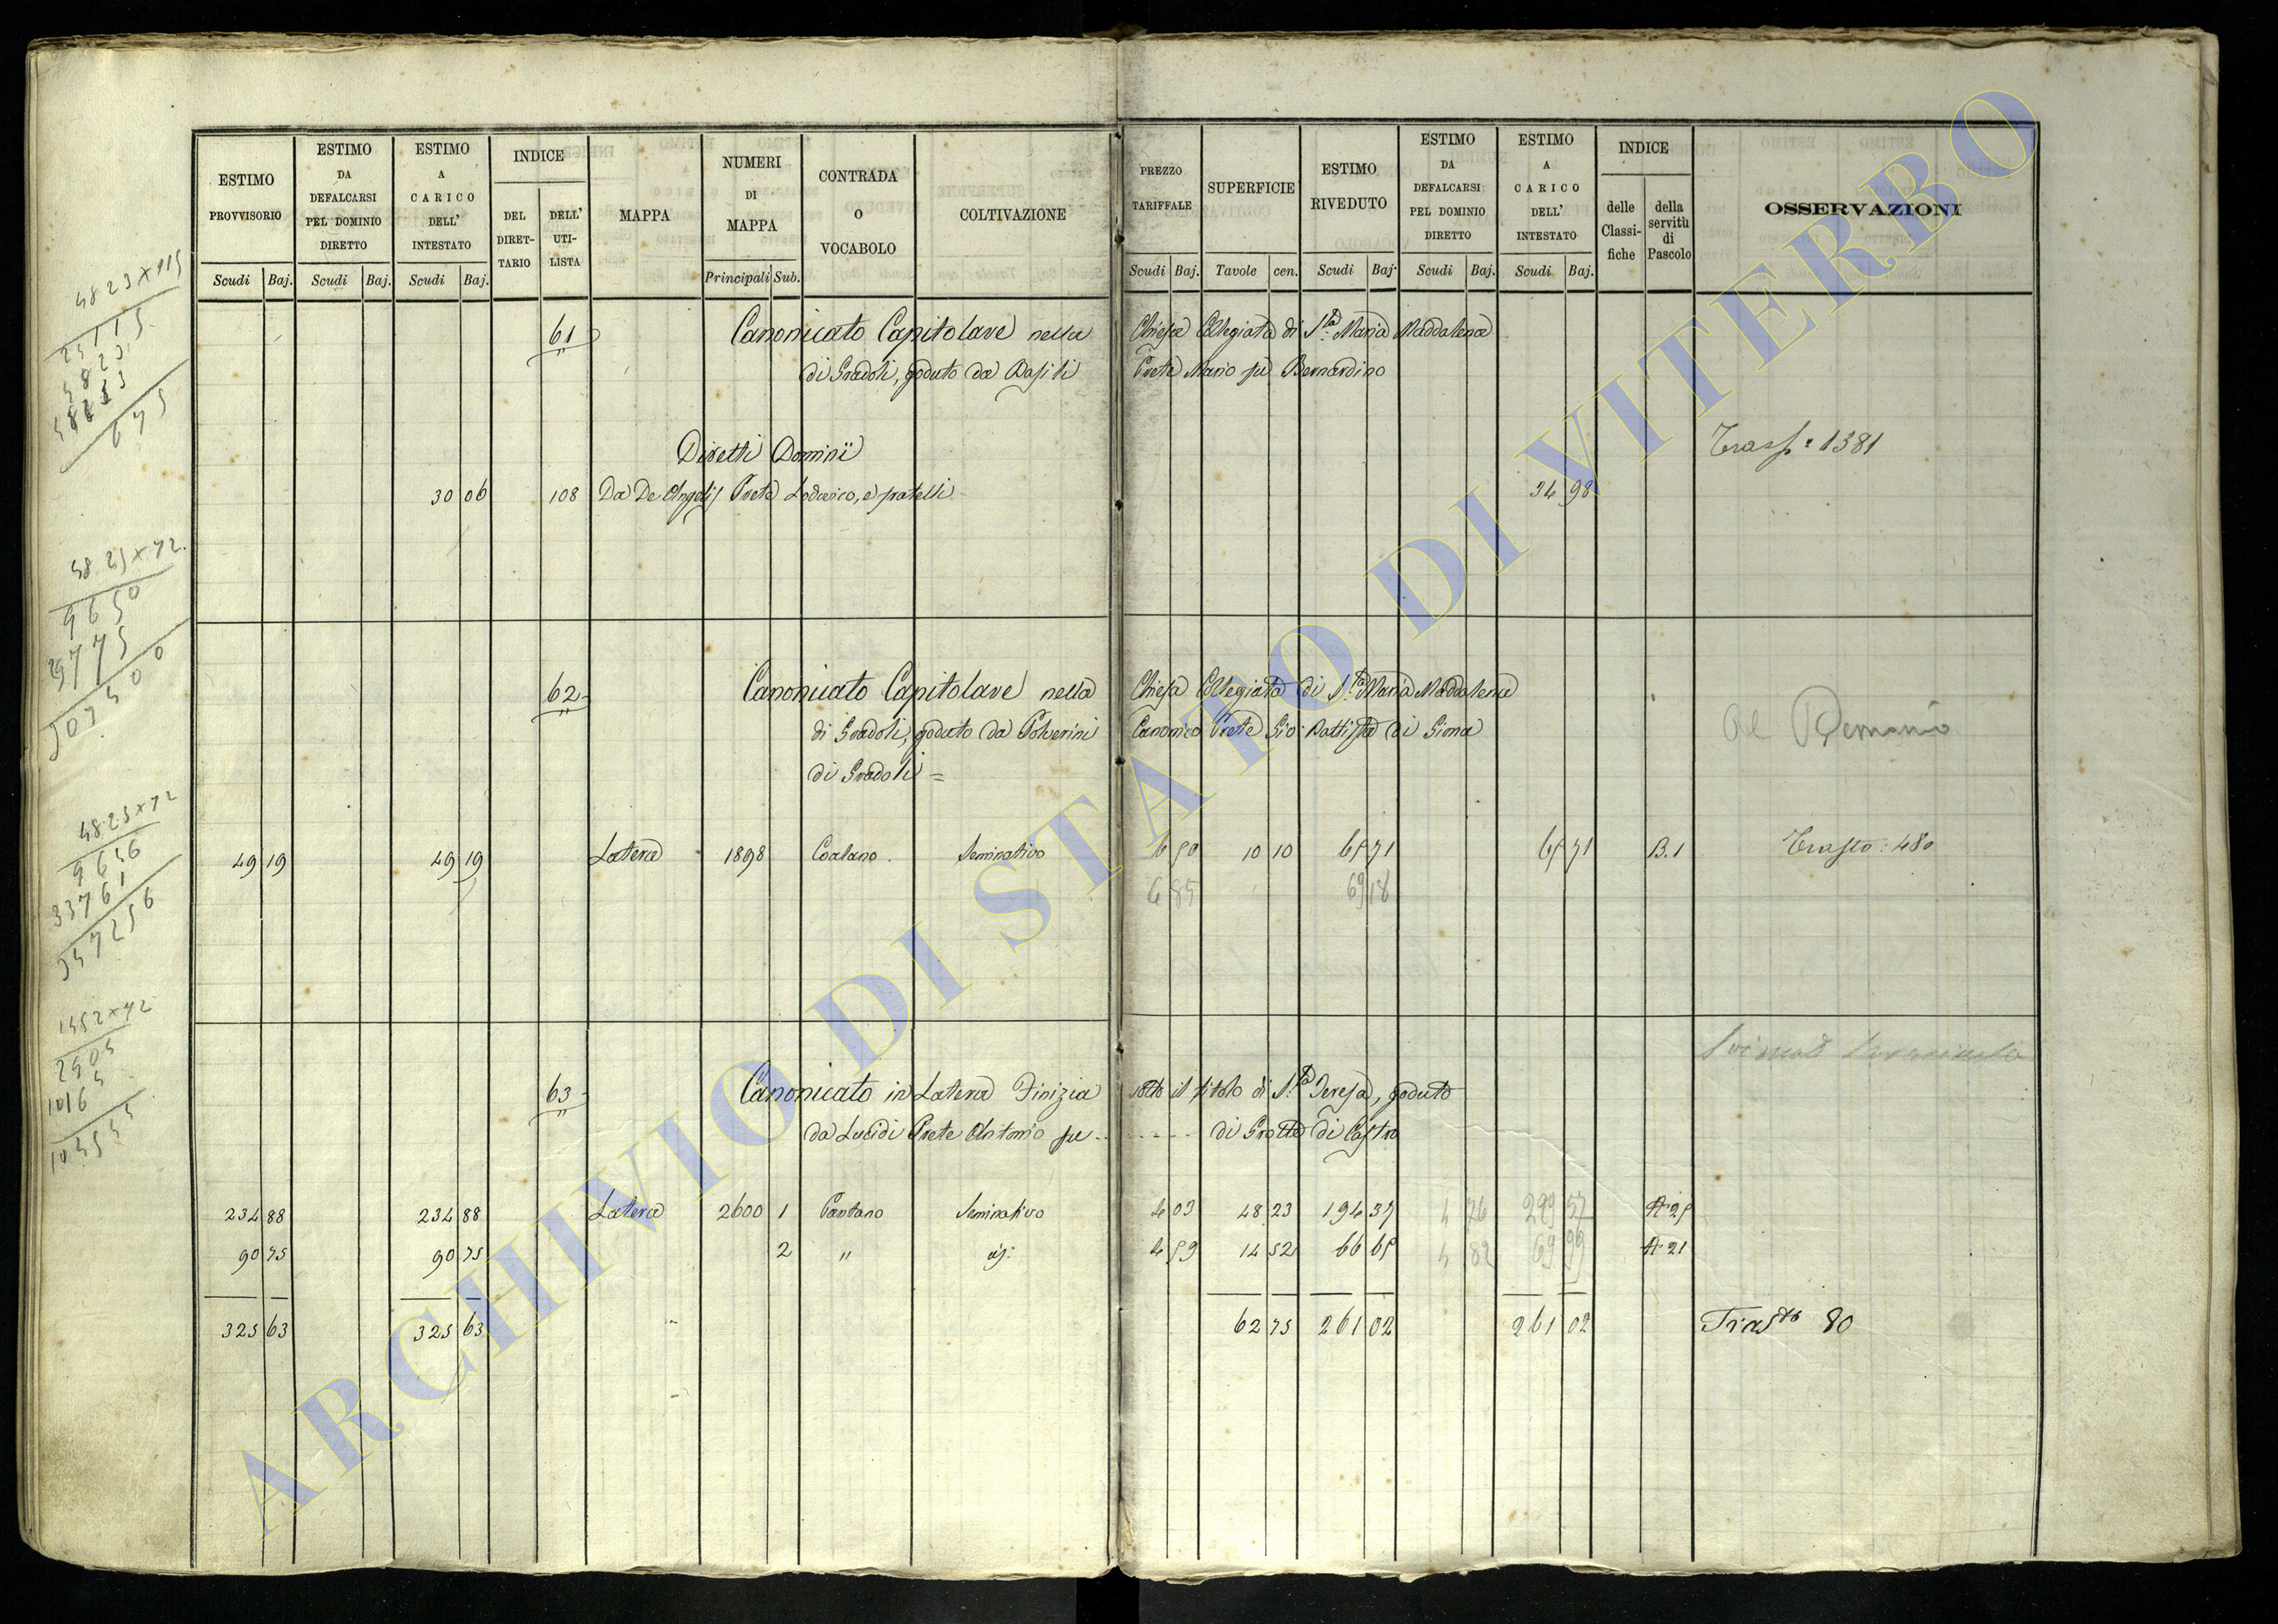 ESTIMO PROVVISORIO Scudi Baj.
ESTIMO DA DEFALCARSI PEL DOMINIO DIRETTO Scudi Baj.
ESTIMO A CARICO DELL' INTESTATO Scudi Baj.
INDICE DEL DIRET-TARIO DELL' UTI-LISTA
MAPPA
NUMERI DI MAPPA Principali Sub.
CONTRADA O VOCABOLO
COLTIVAZIONE
PREZZO TARIFFALE Scudi Baj.
SUPERFICIE Tavole cen.
ESTIMO RIVEDUTO Scudi Baj.
ESTIMO DA DEFALCARSI PEL DOMINIO DIRETTO Scudi Baj.
ESTIMO A CARICO DELL' INTESTATO Scudi Baj.
INDICE delle Classi-fiche della servitù di Pascolo
OSSERVAZIONI
61 Canonicato Capitolare nella Chiesa Collegiata di S.ta Maria Maddalena
di Gradoli, goduto da Basili Prete Mario fu Bernardino
Trasp: 1381
Diretti Dominii
30 06 108 Da De Angelis Prete Lodovico, e fratelli 34 98
62 Canonicato Capitolare nella Chiesa Collegiata di S.ta Maria Maddalena
di Gradoli, goduto da Polverini Canonico Prete Gio: Battista di Gioma
di Gradoli =
Al Demanio
49 19 49 19 Latera 1898 Seminativo 6 50 10 10 65 71 65 71 B.1 Trasto: 480
6 85 69 18
63 Canonicato in Latera Finizia sotto il titolo di S.ta Teresa, goduto
da Lucidi Prete Antonio fu ..... di Grotte di Castro
234 88 234 88 Latera 2600 1 Pantano Seminativo 4 03 48 23 194 37 4 76 299 57 A 25
90 75 90 75 2 " id: 4 59 14 52 66 65 4 82 69 99 A 21
325 63 325 63 62 75 261 02 261 02 Trasto 80
4823×115
24115
4823
4823
4823×72
4823×72
9646
33761
347256
1452×72
2904
1016
ARCHIVIO DI STATO DI VITERBO